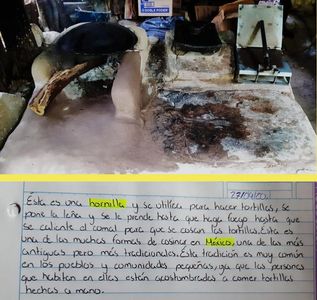 DOBLE PODER
27/04/
Ésta es una hornilla y se utiliza para hacer tortillas, se
pone la leña y se le prende hasta que haga fuego hasta que
se caliente el comal para que se cosan las tortillas. Esta es
una de las muchas formas de cosinar en México, una de las más
antiguas pero más tradicionales. Esta tradición es muy común
en los pueblos y comunidades pequeñas, ya que las personas
que habitan en ellas están acostumbrados a comer tortillas
hechas a mano.